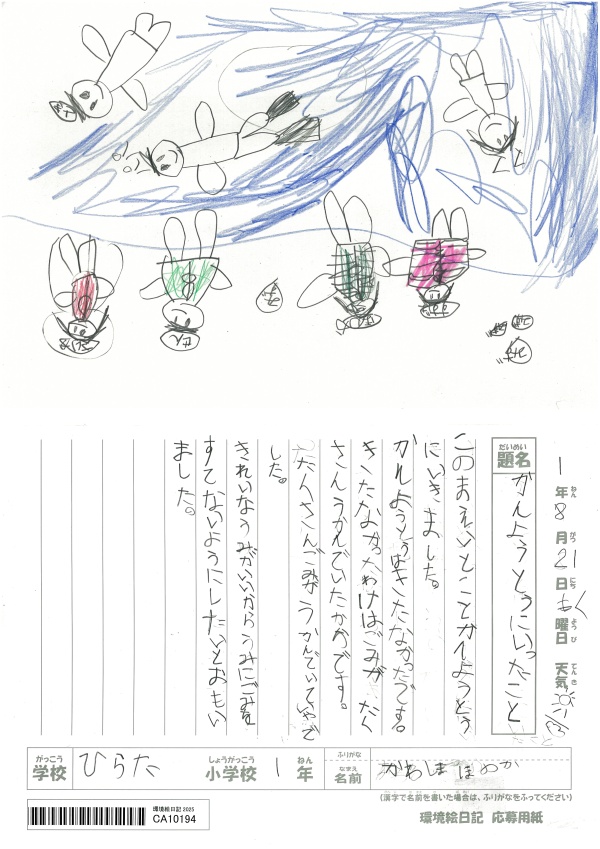 1年8月21日もく曜日 天気
ねん がつ にち ようび てんき
だいめい
題名
かんようとうにいったこと
このまえいとことかんようとう
にいきました。
かんようとうはきたなかったです。
きたなかったわけはごみがたく
さんうかんでいたからです。
たくさんごみがうかんでいていやで
した。
きれいなうみがいいからうみにごみを
すてないようにしたいとおもい
ました。
がっこう しょうがっこう ねん
学校 ひらた 小学校 1年
ふりがな
なまえ
名前 かわしまほのか
(漢字で名前を書いた場合は、ふりがなをふってください)
環境絵日記 2025
CA10194
環境絵日記 応募用紙